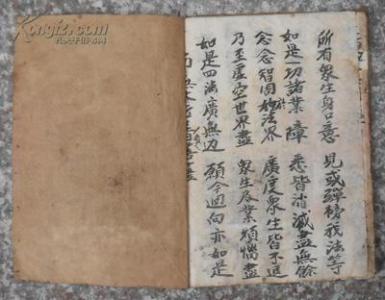 所有衆生身口意　見或彈謗我法等
如是一切諸業障　悉皆消滅盡無餘
念念智周於法界　廣度衆生皆不退
乃至虛空世界盡　衆生及業煩惱盡
如是四法廣無边　願今迴向亦如是